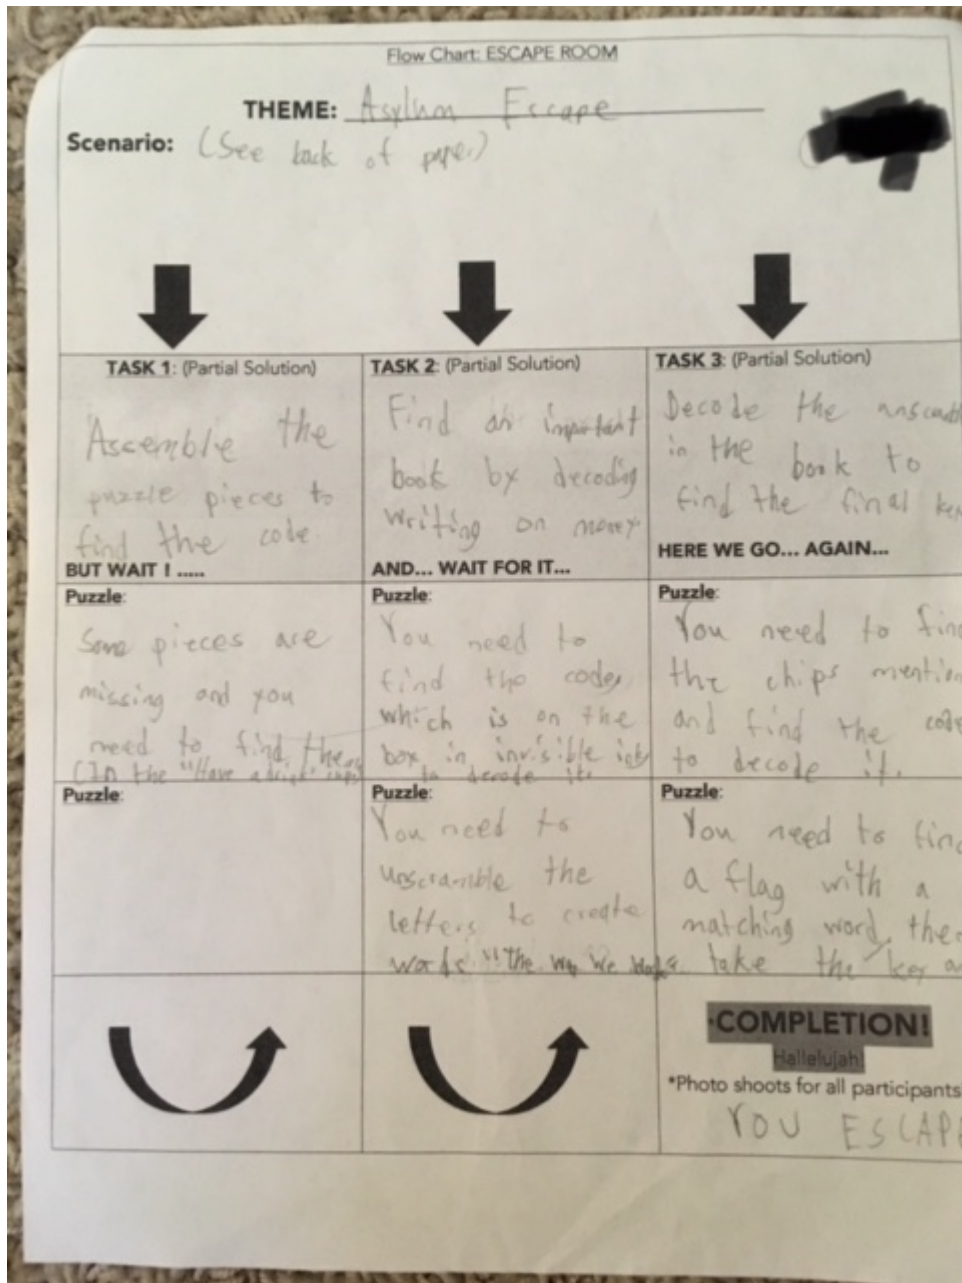 Flow Chart: ESCAPE ROOM
THEME: Asylum Escape
Scenario: (See back of paper)
TASK 1: (Partial Solution)
Assemble the
puzzle pieces to
find the code
BUT WAIT ! .....
Puzzle:
Some pieces are
missing and you
need to find
(In the "Have a
Puzzle:
TASK 2: (Partial Solution)
Find an important
book by decoding
writing on money
AND... WAIT FOR IT...
Puzzle:
You need to
find the code,
which is on the
box in invisible ink
to decode it.
Puzzle:
You need to
unscramble the
letters to create
words "The way we
TASK 3: (Partial Solution)
Decode the
in the book to
find the final key
HERE WE GO... AGAIN...
Puzzle:
You need to find
the chips mention
and find the code
to decode it.
Puzzle:
You need to find
a flag with a
matching word, then
take the key a
COMPLETION!
Hallelujah!
*Photo shoots for all participants
YOU ESCAPE